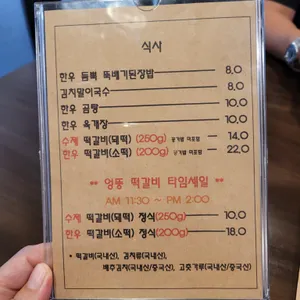 식사
한우 듬뿍 뚝배기된장밥 8.0
김치말이국수 8.0
한우 곰탕 10.0
한우 육개장 10.0
수제 떡갈비(돼떡) (250g) 공기밥 미포함 14.0
한우 떡갈비(소떡) (200g) 공기밥 미포함 22.0
** 엉뚱 떡갈비 타임세일 **
AM 11:30 ~ PM 2:00
수제 떡갈비(돼떡) 정식(250g) 10.0
한우 떡갈비(소떡) 정식(200g) 18.0
• 떡갈비(국내산), 김치류(국내산),
배추김치(국내산/중국산), 고춧가루(국내산/중국산)